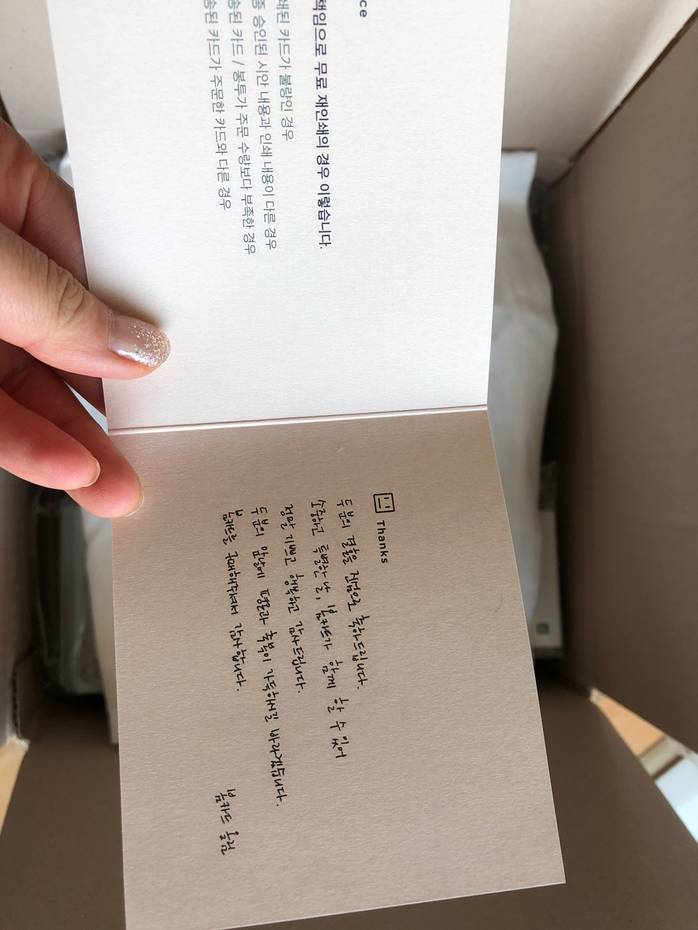 ce
책임으로 무료 재인쇄의 경우 이렇습니다.
쇄된 카드가 불량인 경우
종 승인된 시안 내용과 인쇄 내용이 다른 경우
송된 카드 / 봉투가 주문 수량보다 부족한 경우
송된 카드가 주문한 카드와 다른 경우
Thanks
두분의 결혼을 진심으로 축하드립니다.
소중하고 특별한 날, 봄카드가 함께 할 수 있어
정말 기쁘고 행복하고 감사드립니다.
두분의 앞날에 평안과 축복이 가득하시길 바라겠습니다.
봄카드를 구매해주셔서 감사합니다.
봄카드 올림